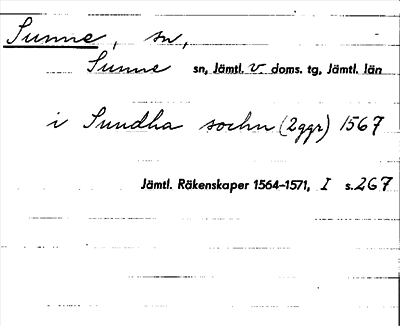 Sunne, sn,
Sunne sn, Jämtl. v. doms. tg, Jämtl. län
i Sundha sochn (2ggr) 1567
Jämtl. Räkenskaper 1564-1571, I s. 267